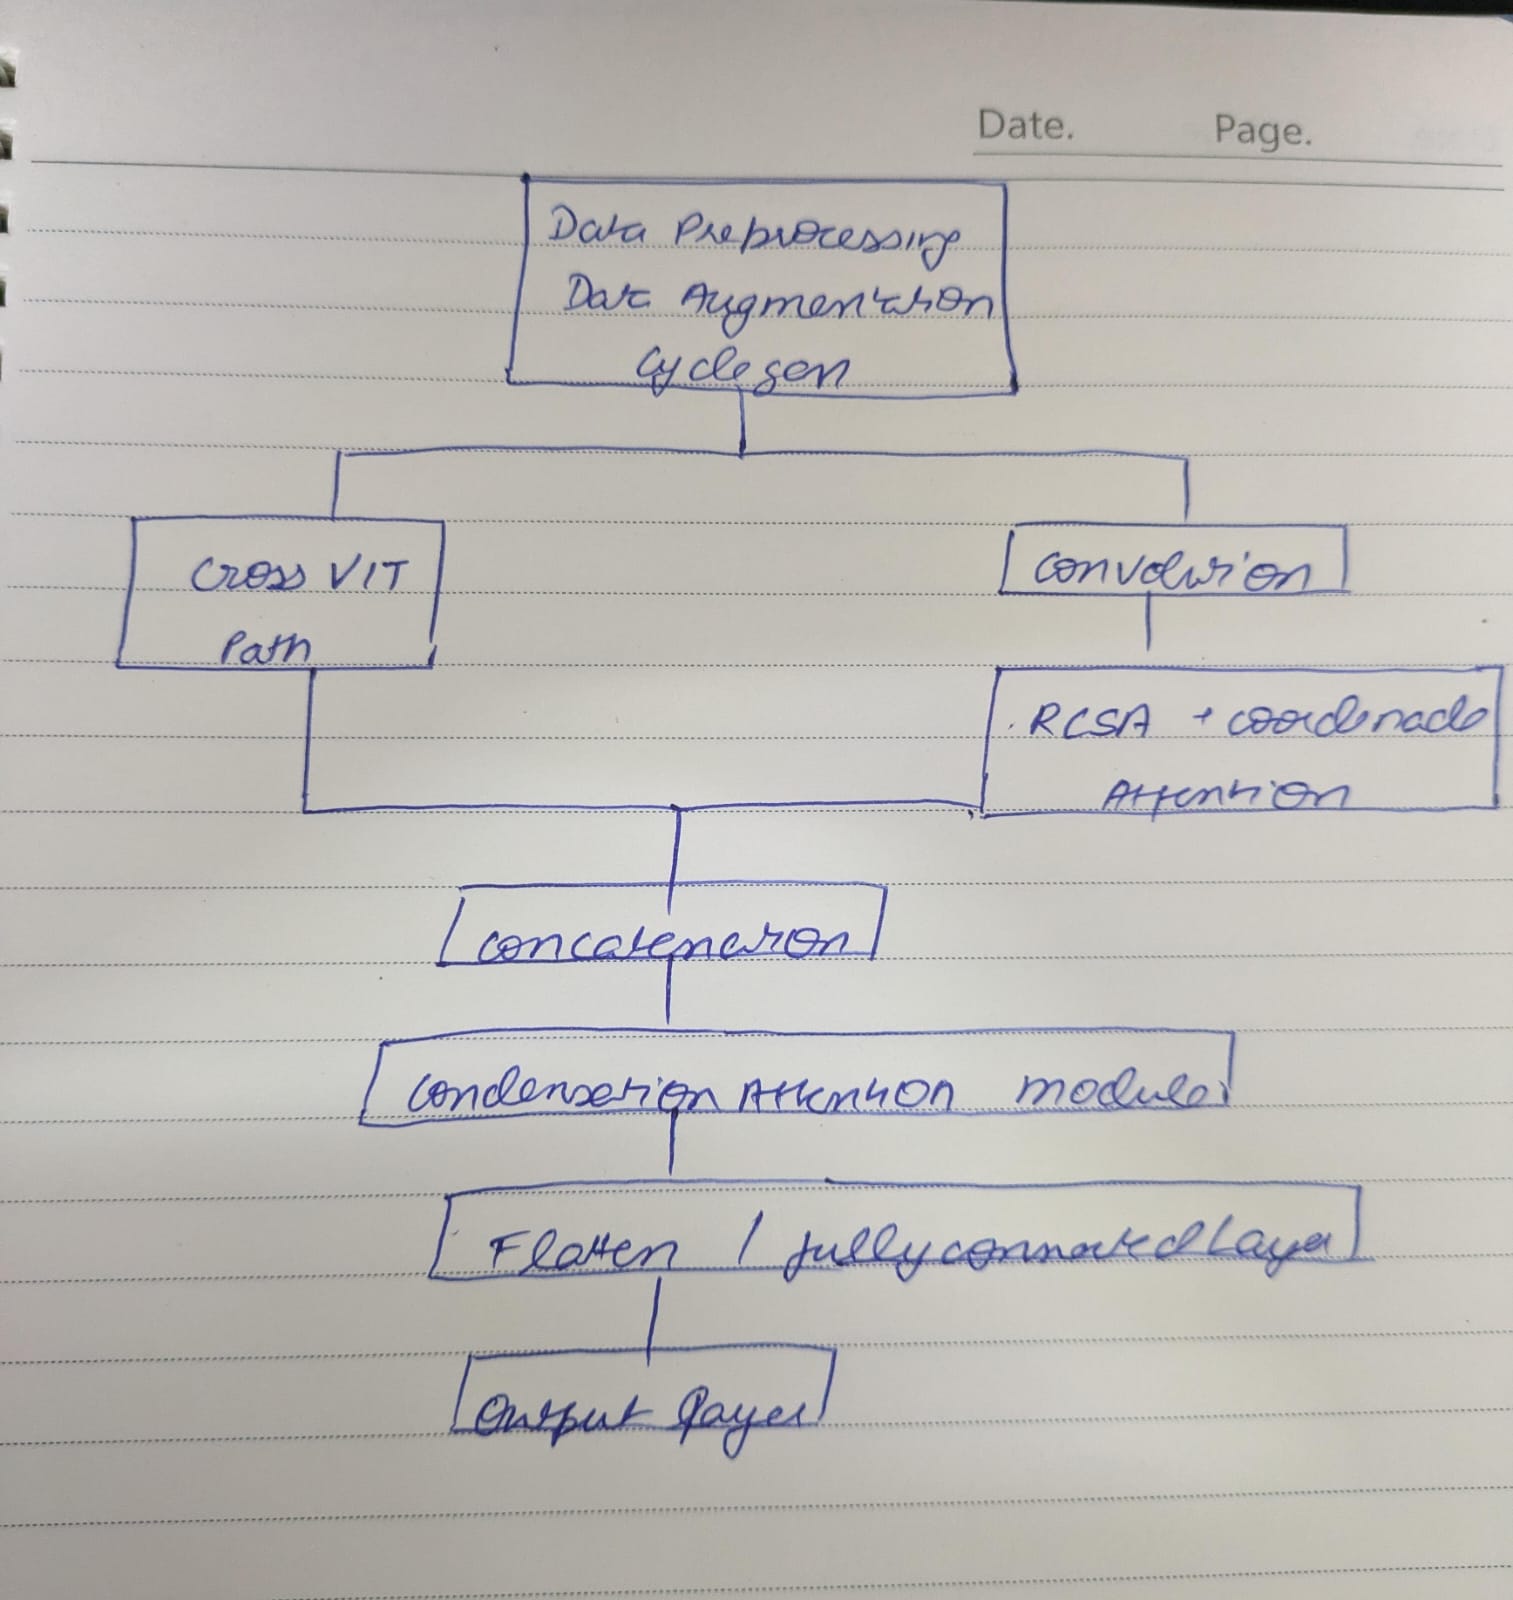 Date. Page.
Data Preprocessing
Data Augmentation
Cyclegan
Cross VIT
Path
Convolution
RCSA + coordenade
Attention
Concatenation
Condensation Attention module
Flatten / fully connected Layer
Output Layer